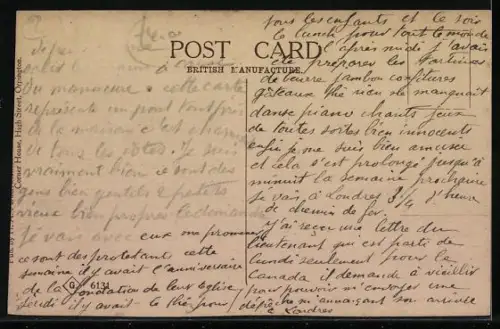 POST CARD
BRITISH MANUFACTURE.
Corner House, High Street, Orpington.
G 6131
cette carte
représente un pont tout près
de la maison c'est charmant
de tous les côtés. Je suis
vraiment bien ce sont des
gens bien gentils 2 petits
vieux bien propres
je vais avec eux me promener
ce sont des protestants cette
semaine il y avait l'anniversaire
de la fondation de leur Eglise,
jeudi il y avait le thé pour
tous les enfants et le soir
le lunch pour tout le monde
l'après midi j'avais
été préparer les tartines
de beurre jambon confitures
gâteaux thé rien ne manquait
danse piano chants jeux
de toutes sortes bien innocents
enfin je me suis bien amusée
et cela s'est prolongé jusqu'à
minuit la semaine prochaine
je vais à Londres 3/4 d'heure
de chemin de fer
j'ai reçu une lettre du
lieutenant qui est parti
lundi seulement pour le
Canada il demande à
pour pouvoir m'envoyer une
dépêche m'annonçant son arrivée
à Londres